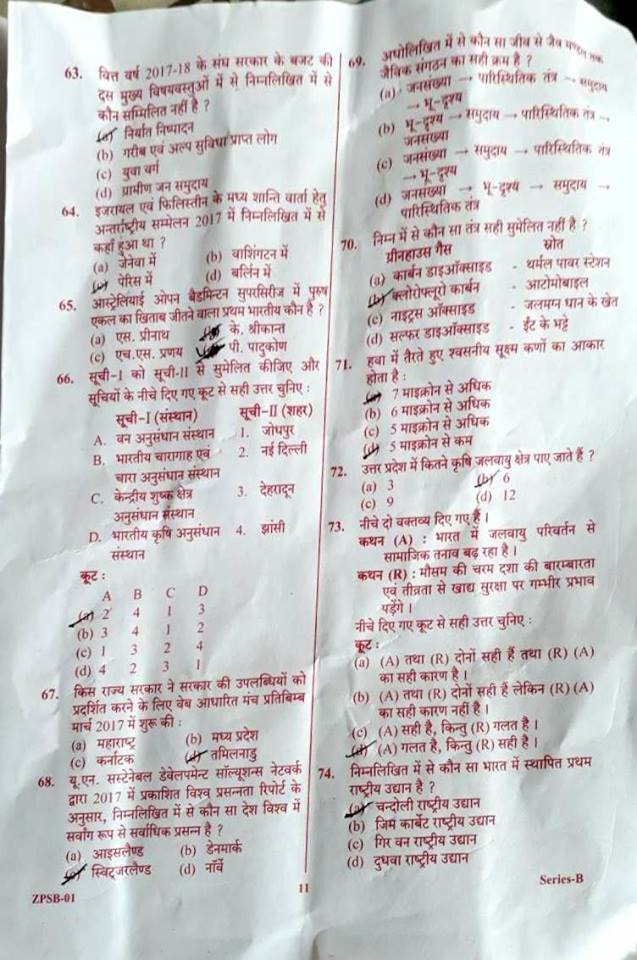 63. वित्त वर्ष 2017-18 के संघ सरकार के बजट की
दस मुख्य विषयवस्तुओं में से निम्नलिखित में से
कौन सम्मिलित नहीं है ?
(a) निर्यात निष्पादन
(b) गरीब एवं अल्प सुविधा प्राप्त लोग
(c) युवा वर्ग
(d) ग्रामीण जन समुदाय
64. इजरायल एवं फिलिस्तीन के मध्य शान्ति वार्ता हेतु
अन्तर्राष्ट्रीय सम्मेलन 2017 में निम्नलिखित में से
कहाँ हुआ था ?
(a) जेनेवा में (b) वाशिंगटन में
(c) पेरिस में (d) बर्लिन में
65. आस्ट्रेलियाई ओपन बैडमिन्टन सुपरसिरीज में पुरुष
एकल का खिताब जीतने वाला प्रथम भारतीय कौन है ?
(a) एस. प्रीनाथ के. श्रीकान्त
(c) एच.एस. प्रणय पी. पादुकोण
66. सूची-I को सूची-II से सुमेलित कीजिए और
सूचियों के नीचे दिए गए कूट से सही उत्तर चुनिए :
सूची-I (संस्थान) सूची-II (शहर)
A. वन अनुसंधान संस्थान 1. जोधपुर
B. भारतीय चारागाह एवं 2. नई दिल्ली
चारा अनुसंधान संस्थान
C. केन्द्रीय शुष्क क्षेत्र 3. देहरादून
अनुसंधान संस्थान
D. भारतीय कृषि अनुसंधान 4. झांसी
संस्थान
कूट :
A B C D
(a) 2 4 1 3
(b) 3 4 1 2
(c) 1 3 2 4
(d) 4 2 3 1
67. किस राज्य सरकार ने सरकार की उपलब्धियों को
प्रदर्शित करने के लिए वेब आधारित मंच प्रतिबिम्ब
मार्च 2017 में शुरू की :
(a) महाराष्ट्र (b) मध्य प्रदेश
(c) कर्नाटक (d) तमिलनाडु
68. यू.एन. सस्टेनेबल डेवेलपमेन्ट सॉल्यूशन्स नेटवर्क
द्वारा 2017 में प्रकाशित विश्व प्रसन्नता रिपोर्ट के
अनुसार, निम्नलिखित में से कौन सा देश विश्व में
सर्वांग रूप से सर्वाधिक प्रसन्न है ?
(a) आइसलैण्ड (b) डेनमार्क
(c) स्विट्जरलैण्ड (d) नॉर्वे
69. अधोलिखित में से कौन सा जीव से जैव मण्डल तक
जैविक संगठन का सही क्रम है ?
(a) जनसंख्या → पारिस्थितिक तंत्र → समुदाय
→ भू-दृश्य
(b) भू-दृश्य → समुदाय → पारिस्थितिक तंत्र →
जनसंख्या
(c) जनसंख्या → समुदाय → पारिस्थितिक तंत्र
→ भू-दृश्य
(d) जनसंख्या → भू-दृश्य → समुदाय →
पारिस्थितिक तंत्र
70. निम्न में से कौन सा तंत्र सही सुमेलित नहीं है ?
ग्रीनहाउस गैस स्रोत
(a) कार्बन डाइऑक्साइड - थर्मल पावर स्टेशन
(b) क्लोरोफ्लूरो कार्बन - आटोमोबाइल
(c) नाइट्रस ऑक्साइड - जलमग्न धान के खेत
(d) सल्फर डाइऑक्साइड - ईंट के भट्टे
71. हवा में तैरते हुए श्वसनीय सूक्ष्म कणों का आकार
होता है :
(a) 7 माइक्रोन से अधिक
(b) 6 माइक्रोन से अधिक
(c) 5 माइक्रोन से अधिक
(d) 5 माइक्रोन से कम
72. उत्तर प्रदेश में कितने कृषि जलवायु क्षेत्र पाए जाते हैं ?
(a) 3 (b) 6
(c) 9 (d) 12
73. नीचे दो वक्तव्य दिए गए हैं ।
कथन (A) : भारत में जलवायु परिवर्तन से
सामाजिक तनाव बढ़ रहा है ।
कथन (R) : मौसम की चरम दशा की बारम्बारता
एवं तीव्रता से खाद्य सुरक्षा पर गम्भीर प्रभाव
पड़ेंगे ।
नीचे दिए गए कूट से सही उत्तर चुनिए :
कूट :
(a) (A) तथा (R) दोनों सही हैं तथा (R) (A)
का सही कारण है ।
(b) (A) तथा (R) दोनों सही हैं लेकिन (R) (A)
का सही कारण नहीं है ।
(c) (A) सही है, किन्तु (R) गलत है ।
(d) (A) गलत है, किन्तु (R) सही है ।
74. निम्नलिखित में से कौन सा भारत में स्थापित प्रथम
राष्ट्रीय उद्यान है ?
(a) चन्दोली राष्ट्रीय उद्यान
(b) जिम कार्बेट राष्ट्रीय उद्यान
(c) गिर वन राष्ट्रीय उद्यान
(d) दुधवा राष्ट्रीय उद्यान
ZPSB-01 11 Series-B